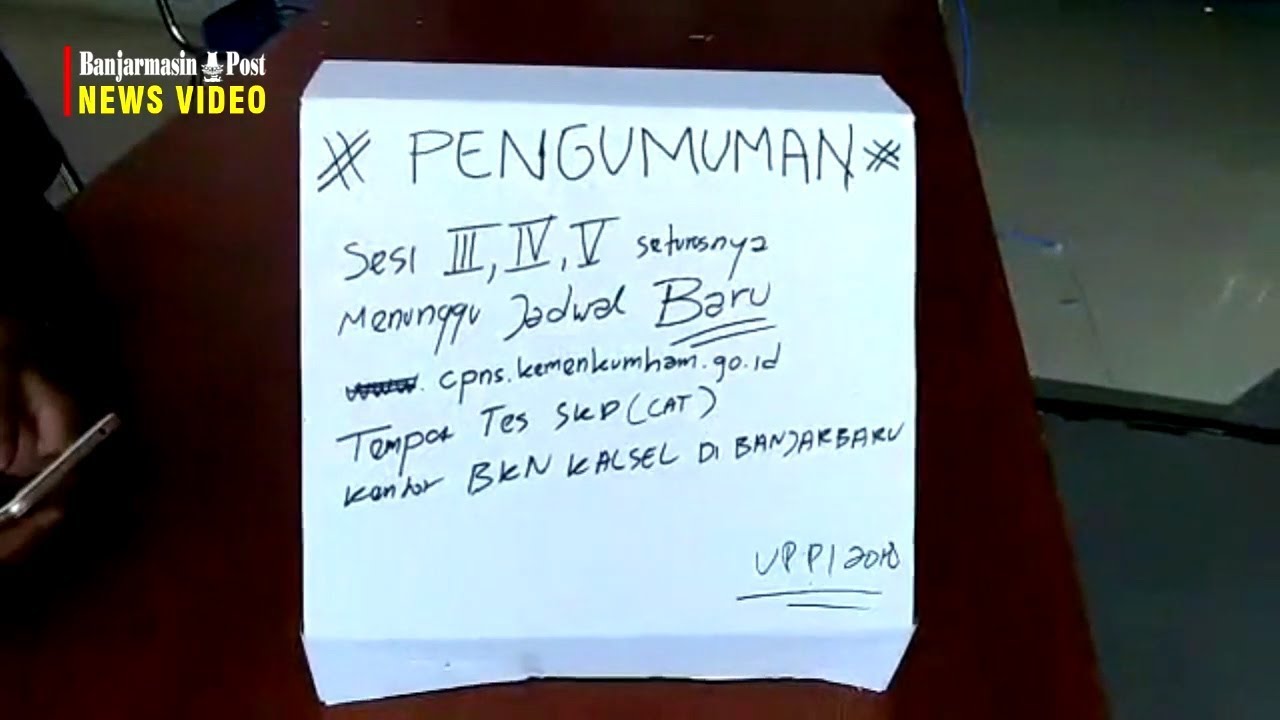 Banjarmasin Post
NEWS VIDEO
# PENGUMUMAN #
Sesi III, IV, V seturosnya
Menunggu Jadwal Baru
www. cpns.kemenkumham.go.id
Tempat Tes SKD (CAT)
Kantor BKN KALSEL DI BANJARBARU
2018